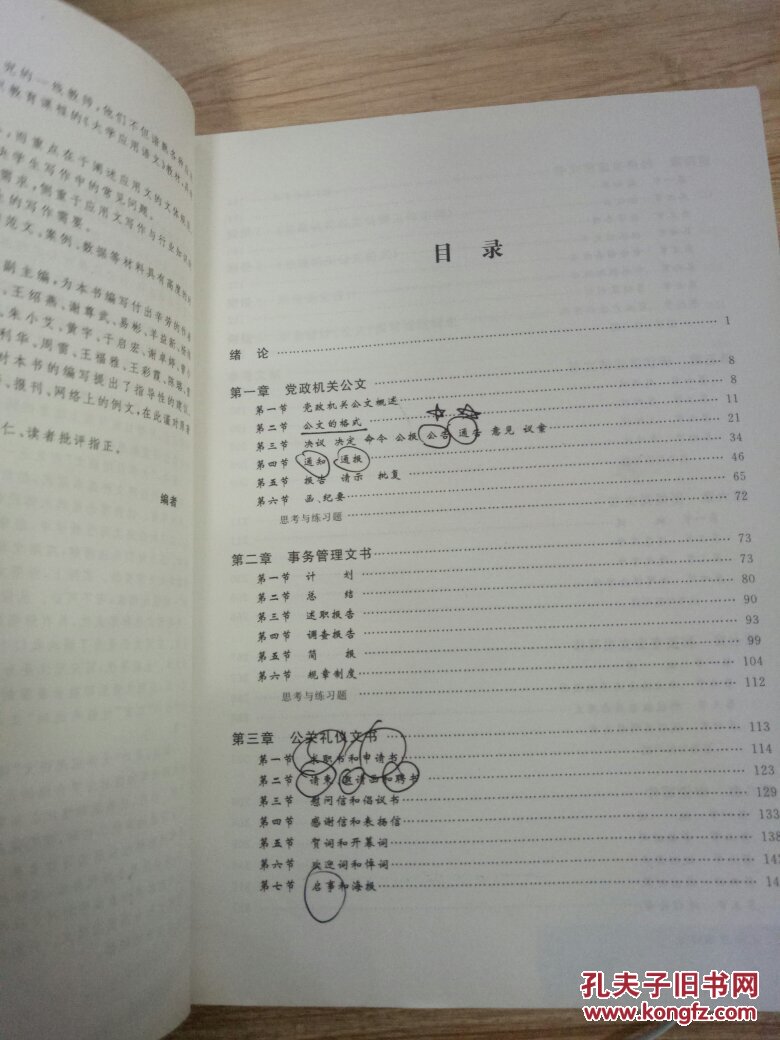 究的一线教师，他们不但谙熟各种应
教育课程的《大学应用语文》教材，具
，而重点在于阐述应用文的文体
学生写作中的常见问题。
需求，侧重于应用文写作与行业知识
的写作需要。
范文、案例、数据等材料具有高度的
副主编，为本书编写付出辛劳的作者
、王绍燕、谢尊武、易彬、羊益新、
、朱小艾、黄宇、于启宏、谢卓婷、
利华、周雷、王福雅、王彩霞、陈璐、
对本书的编写提出了指导性的建议
、报刊、网络上的例文，在此谨对原
仁、读者批评指正。
编者
目 录
绪 论 1
第一章 党政机关公文 8
第一节 党政机关公文概述 8
第二节 公文的格式 11
第三节 决议 决定 命令 公报 公告 通告 意见 议案 21
第四节 通知 通报 34
第五节 报告 请示 批复 46
第六节 函、纪要 65
思考与练习题 72
第二章 事务管理文书 73
第一节 计 划 73
第二节 总 结 80
第三节 述职报告 90
第四节 调查报告 93
第五节 简 报 99
第六节 规章制度 104
思考与练习题 112
第三章 公关礼仪文书 113
第一节 求职书和申请书 114
第二节 请柬、邀请函和聘书 123
第三节 慰问信和倡议书 129
第四节 感谢信和表扬信 133
第五节 贺词和开幕词 138
第六节 欢迎词和悼词 14
第七节 启事和海报 14
孔夫子旧书网
www.kongfz.com